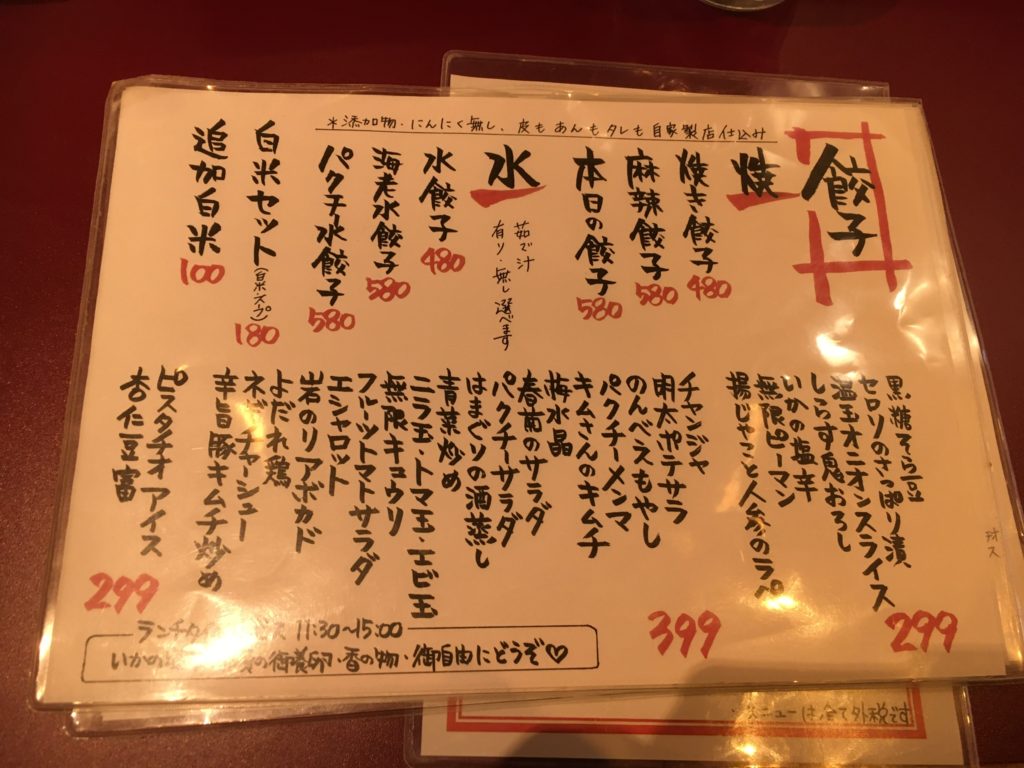 餃子
*添加物・にんにく無し、皮もあんもタレも自家製店仕込み
焼
焼き餃子 480
麻辣餃子 580
本日の餃子 580
水
茹で汁
有り・無し選べます
水餃子 480
海老水餃子 580
パクチー水餃子 580
白米セット 180
追加白米 100
黒糖そら豆
セロリのさっぱり漬
温玉オニオンスライス
しらす鬼おろし
いかの塩辛
無限ピーマン
揚じゃこと人参のラペ
299
チャンジャ
明太ポテサラ
のんべえもやし
パクチーメンマ
キムさんのキムチ
梅水晶
春菊のサラダ
パクチーサラダ
はまぐりの酒蒸し
青菜炒め
ニラ玉・トマ玉・エビ玉
無限キュウリ
フルーツトマトサラダ
エシャロット
岩のリアボカド
よだれ鶏
ネギチャーシュー
辛旨豚キムチ炒め
399
ピスタチオアイス
杏仁豆富
299
ランチタイ 11:30~15:00
いかの の御養卵・香の物・御自由にどうぞ♡
ニューは全て外税です